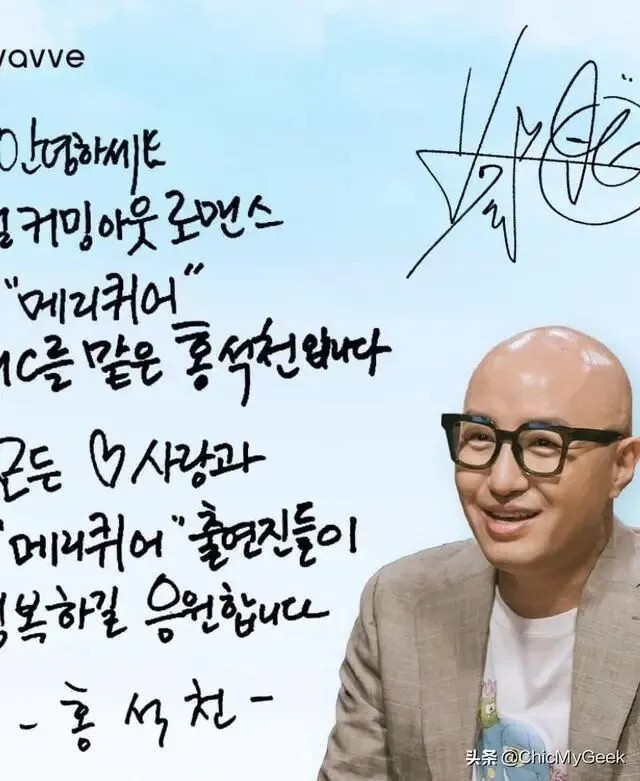 wavve
안녕하세요
얼 커밍아웃 로맨스
"메리퀴어"
MC를 맡은 홍석천입니다
모든 ♡ 사랑과
"메리퀴어" 출연진들이
행복하길 응원합니다
- 홍 석 천 -
头条 @ChicMyGeek